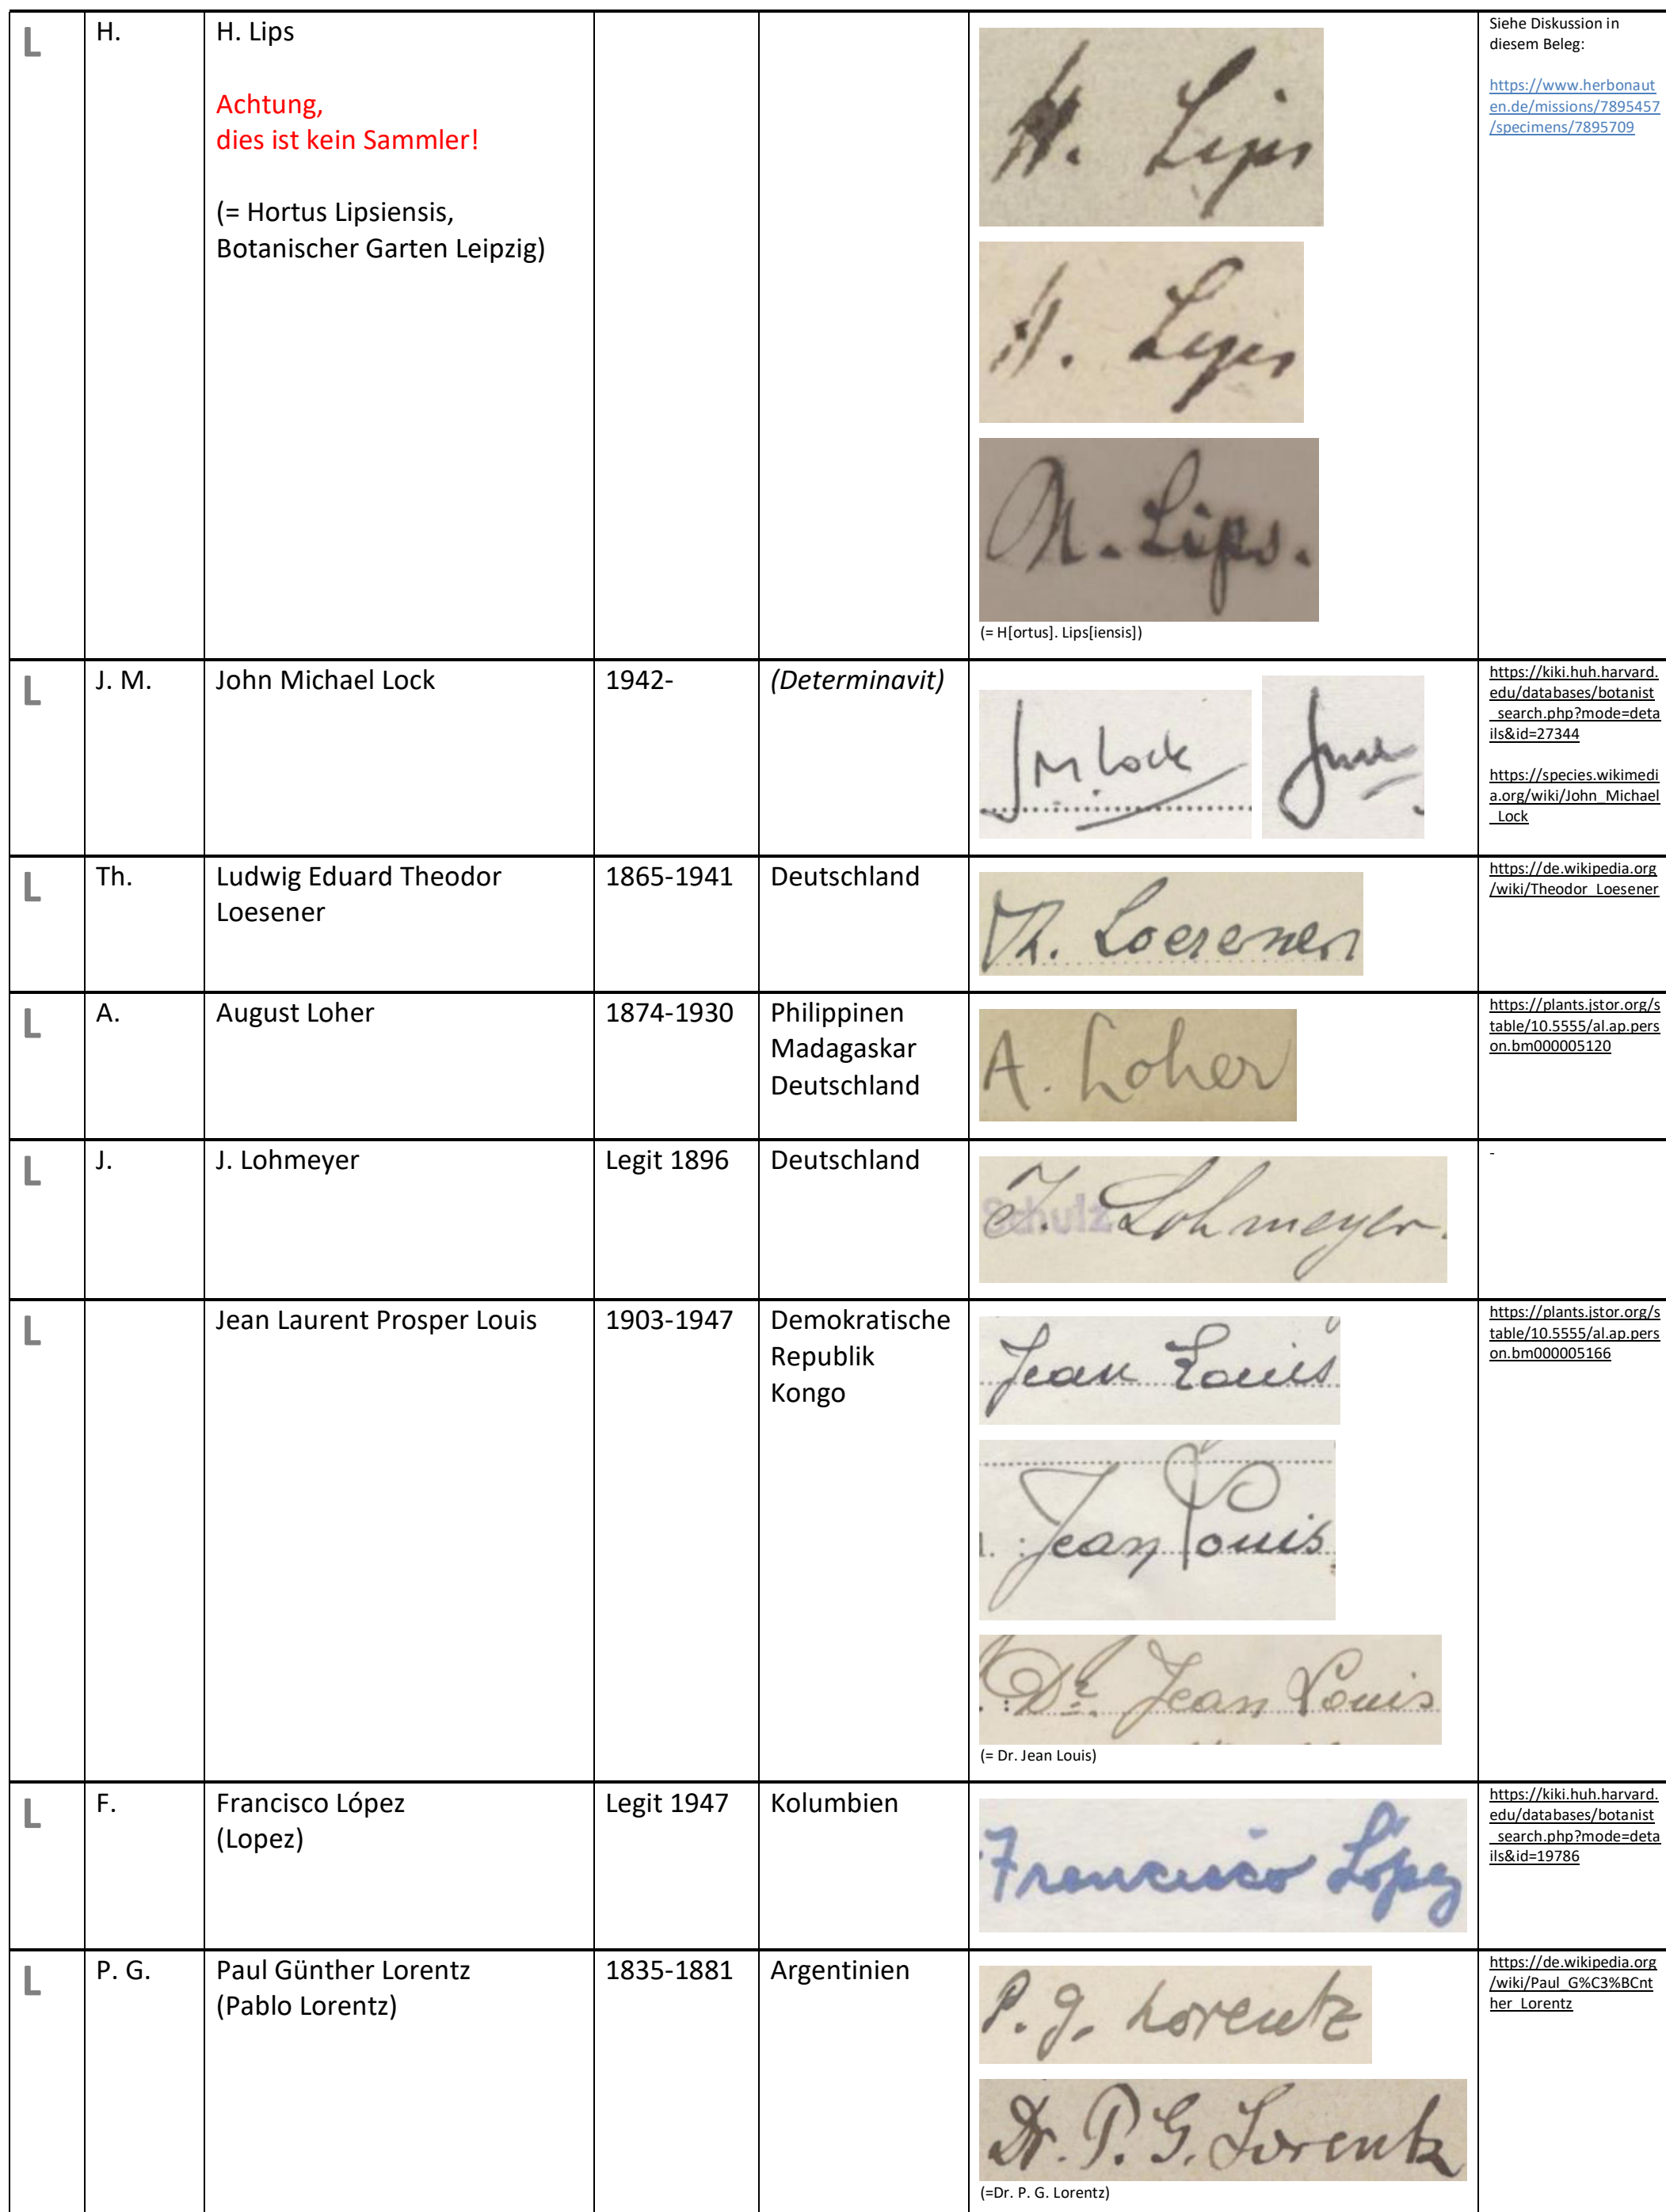 L
H.
H. Lips
Achtung,
dies ist kein Sammler!
(= Hortus Lipsiensis,
Botanischer Garten Leipzig)
H. Lips
H. Lips
H. Lips.
(= H[ortus]. Lips[iensis])
Siehe Diskussion in
diesem Beleg:
https://www.herbonaut
en.de/missions/7895457
/specimens/7895709
L
J. M.
John Michael Lock
1942-
(Determinavit)
JM Lock
https://kiki.huh.harvard.
edu/databases/botanist
_search.php?mode=deta
ils&id=27344
https://species.wikimedi
a.org/wiki/John_Michael
_Lock
L
Th.
Ludwig Eduard Theodor
Loesener
1865-1941
Deutschland
Th. Loesener
https://de.wikipedia.org
/wiki/Theodor_Loesener
L
A.
August Loher
1874-1930
Philippinen
Madagaskar
Deutschland
A. Loher
https://plants.jstor.org/s
table/10.5555/al.ap.pers
on.bm000005120
L
J.
J. Lohmeyer
Legit 1896
Deutschland
Schulz
J. Lohmeyer.
-
L
Jean Laurent Prosper Louis
1903-1947
Demokratische
Republik
Kongo
Jean Louis
Jean Louis
Dr. Jean Louis
(= Dr. Jean Louis)
https://plants.jstor.org/s
table/10.5555/al.ap.pers
on.bm000005166
L
F.
Francisco López
(Lopez)
Legit 1947
Kolumbien
Francisco López
https://kiki.huh.harvard.
edu/databases/botanist
_search.php?mode=deta
ils&id=19786
L
P. G.
Paul Günther Lorentz
(Pablo Lorentz)
1835-1881
Argentinien
P. G. Lorentz
Dr. P. G. Lorentz
(=Dr. P. G. Lorentz)
https://de.wikipedia.org
/wiki/Paul_G%C3%BCnt
her_Lorentz